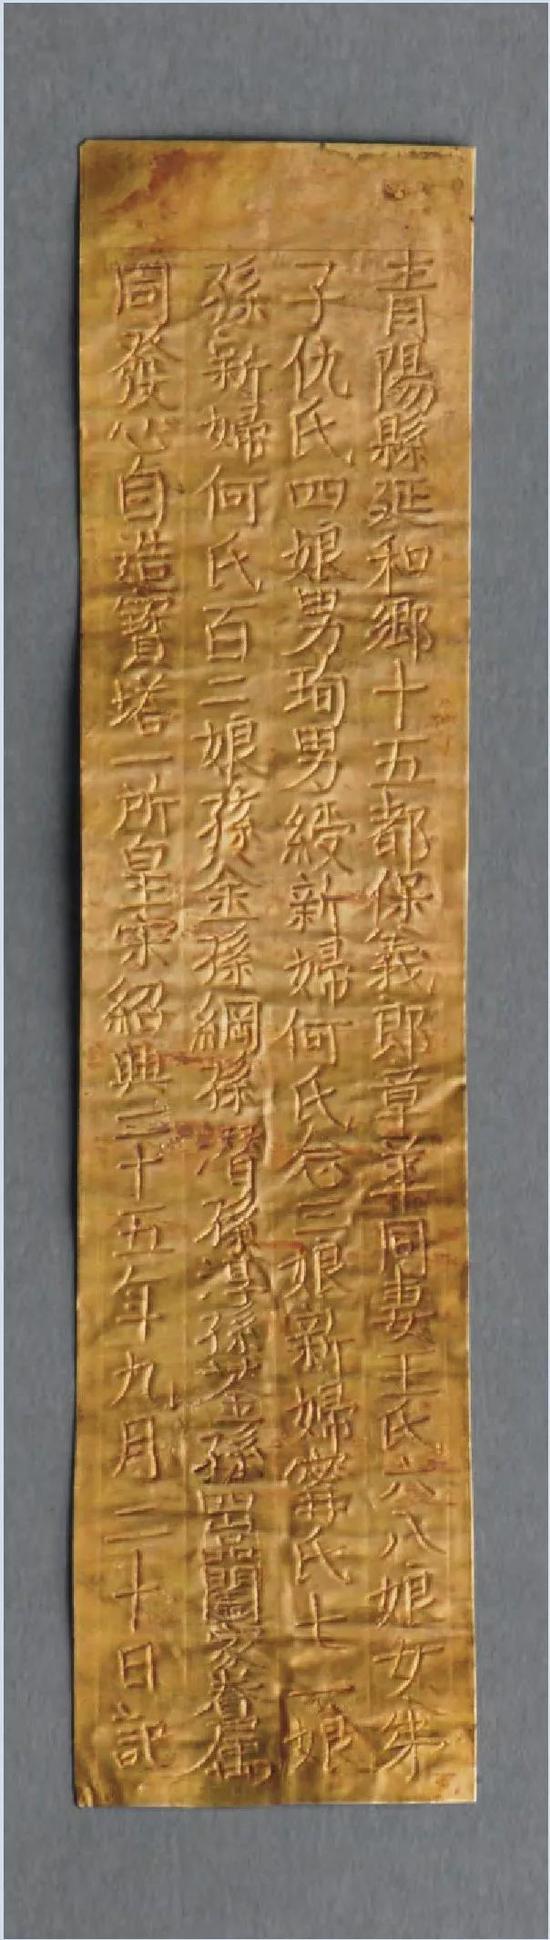 青陽縣延和鄉十五都保義郎章羊同妻王氏六八娘女弟
子仇氏四娘男珣男綬新婦何氏念三娘新婦甯氏七一娘
孫新婦何氏百二娘孫金孫綱孫潛孫淳孫孫四囗闔家眷屬
同發心自造寳塔一所皇宋紹興二十五年九月二十日記